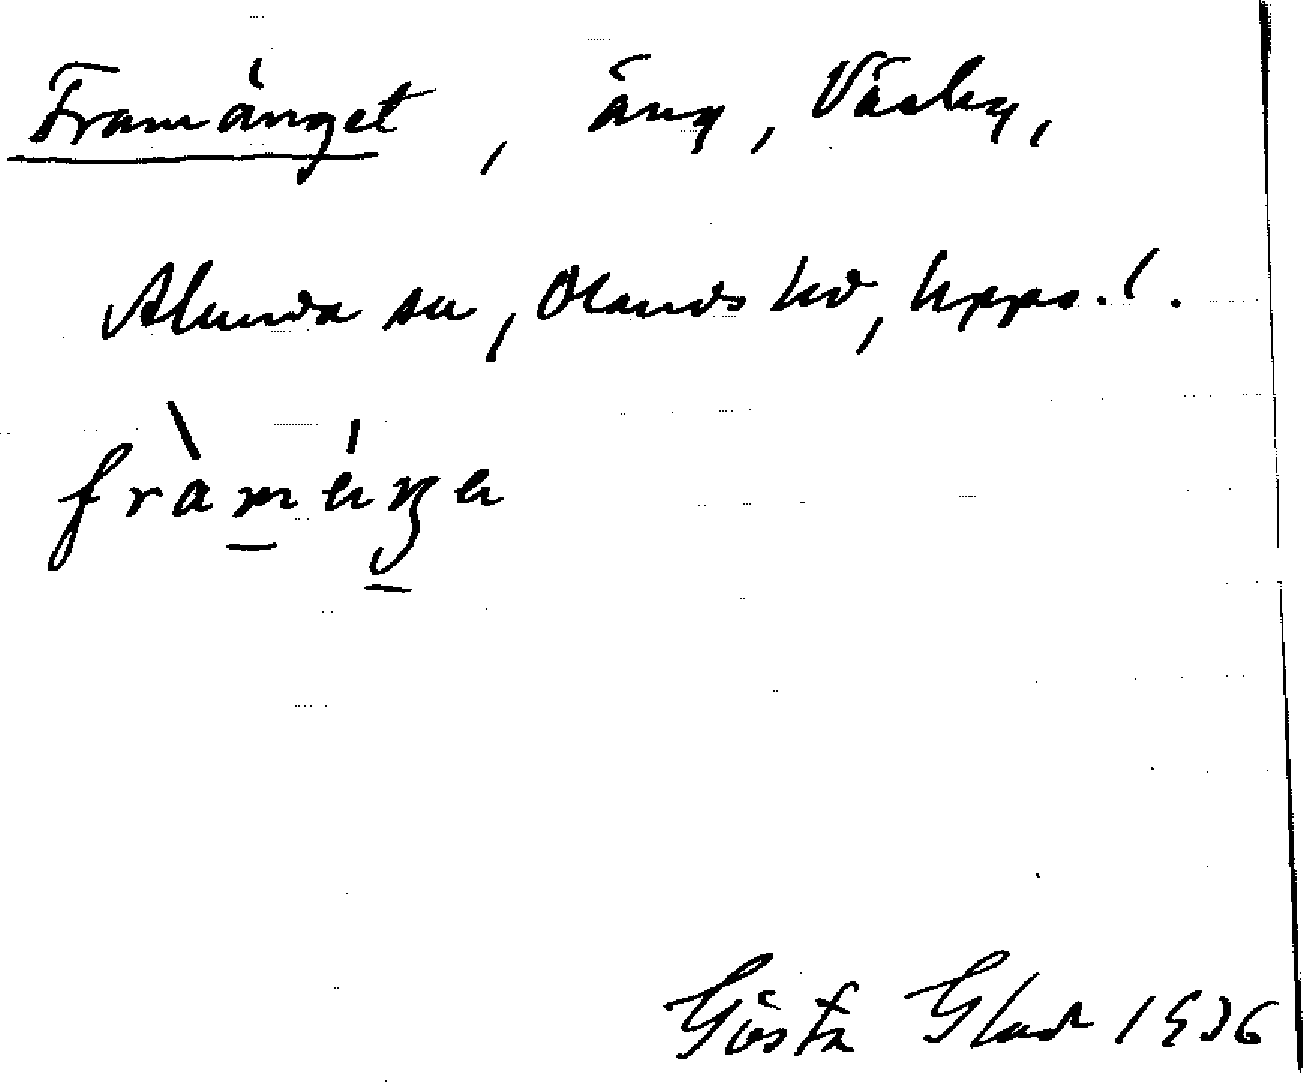 Framänget, äng, Väsby,
Alunda sn, Olands hd, Upps. l.
fràmä́ŋe
Gösta Glad 1936